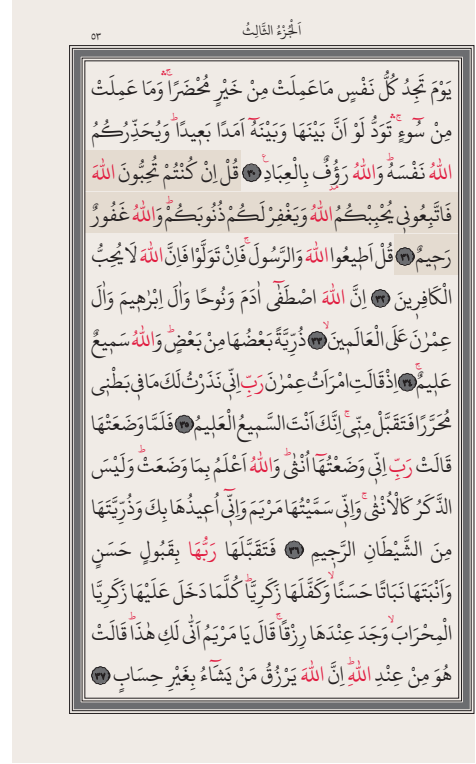 اَلْجُزْءُ الثَّالِثُ
٥٣
يَوْمَ تَجِدُ كُلُّ نَفْسٍ مَاعَمِلَتْ مِنْ خَيْرٍ مُحْضَرًاۚۛ وَمَا عَمِلَتْ
مِنْ سُٓوءٍۚۛ تَوَدُّ لَوْ اَنَّ بَيْنَهَا وَبَيْنَهُٓ اَمَدًا بَعٖيدًاؕ وَيُحَذِّرُكُمُ
اللّٰهُ نَفْسَهُؕ وَاللّٰهُ رَؤُفٌ بِالْعِبَادِࣖ ﴿٣٠﴾ قُلْ اِنْ كُنْتُمْ تُحِبُّونَ اللّٰهَ
فَاتَّبِعُونٖى يُحْبِبْكُمُ اللّٰهُ وَيَغْفِرْ لَكُمْ ذُنُوبَكُمْؕ وَاللّٰهُ غَفُورٌ
رَحٖيمٌ ﴿٣١﴾ قُلْ اَطٖيعُوا اللّٰهَ وَالرَّسُولَۚ فَاِنْ تَوَلَّوْا فَاِنَّ اللّٰهَ لَا يُحِبُّ
الْكَافِرٖينَ ﴿٣٢﴾ اِنَّ اللّٰهَ اصْطَفٰٓى اٰدَمَ وَنُوحًا وَاٰلَ اِبْرٰهٖيمَ وَاٰلَ
عِمْرٰنَ عَلَى الْعَالَمٖينَۙ ﴿٣٣﴾ ذُرِّيَّةً بَعْضُهَا مِنْ بَعْضٍؕ وَاللّٰهُ سَمٖيعٌ
عَلٖيمٌۚ ﴿٣٤﴾ اِذْ قَالَتِ امْرَاَتُ عِمْرٰنَ رَبِّ اِنّٖى نَذَرْتُ لَكَ مَا فٖى بَطْنٖى
مُحَرَّرًا فَتَقَبَّلْ مِنّٖىۚ اِنَّكَ اَنْتَ السَّمٖيعُ الْعَلٖيمُ ﴿٣٥﴾ فَلَمَّا وَضَعَتْهَا
قَالَتْ رَبِّ اِنّٖى وَضَعْتُهَٓا اُنْثٰىؕ وَاللّٰهُ اَعْلَمُ بِمَا وَضَعَتْؕ وَلَيْسَ
الذَّكَرُ كَالْاُنْثٰىۚ وَاِنّٖى سَمَّيْتُهَا مَرْيَمَ وَاِنّٖٓى اُعٖيذُهَا بِكَ وَذُرِّيَّتَهَا
مِنَ الشَّيْطَانِ الرَّجٖيمِ ﴿٣٦﴾ فَتَقَبَّلَهَا رَبُّهَا بِقَبُولٍ حَسَنٍ
وَاَنْبَتَهَا نَبَاتًا حَسَنًاۙ وَكَفَّلَهَا زَكَرِيَّاؕ كُلَّمَا دَخَلَ عَلَيْهَا زَكَرِيَّا
الْمِحْرَابَۙ وَجَدَ عِنْدَهَا رِزْقًاۚ قَالَ يَا مَرْيَمُ اَنّٰى لَكِ هٰذَاؕ قَالَتْ
هُوَ مِنْ عِنْدِ اللّٰهِؕ اِنَّ اللّٰهَ يَرْزُقُ مَنْ يَشَٓاءُ بِغَيْرِ حِسَابٍ ﴿٣٧﴾